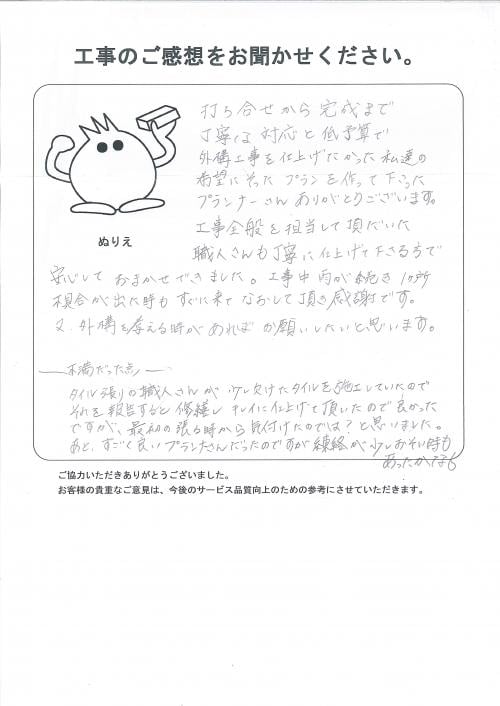 工事のご感想をお聞かせください。
打ち合せから完成まで
丁寧な対応と低予算で
外構工事を仕上げたかった私達の
希望にそったプランを作って下さった
プランナーさんありがとうございます。
工事全般を担当して頂だいた
職人さんも丁寧に仕上げて下さる方で
ぬりえ
安心しておまかせできました。工事中雨が続き1ヶ所
具合が出た時もすぐに来てなおして頂き感謝です。
又、外構を考える時があればお願いしたいと思います。
不満だった点
タイル張りの職人さんが少し欠けたタイルを施工していたので
それを報告すると修繕しキレイに仕上げて頂いたので良かった
ですが、最初の張る時から気付けたのでは?と思いました。
あと、すごく良いプランナさんだったのですが連絡が少しおそい時も
あったかなぁ
ご協力いただきありがとうございました。
お客様の貴重なご意見は、今後のサービス品質向上のための参考にさせていただきます。